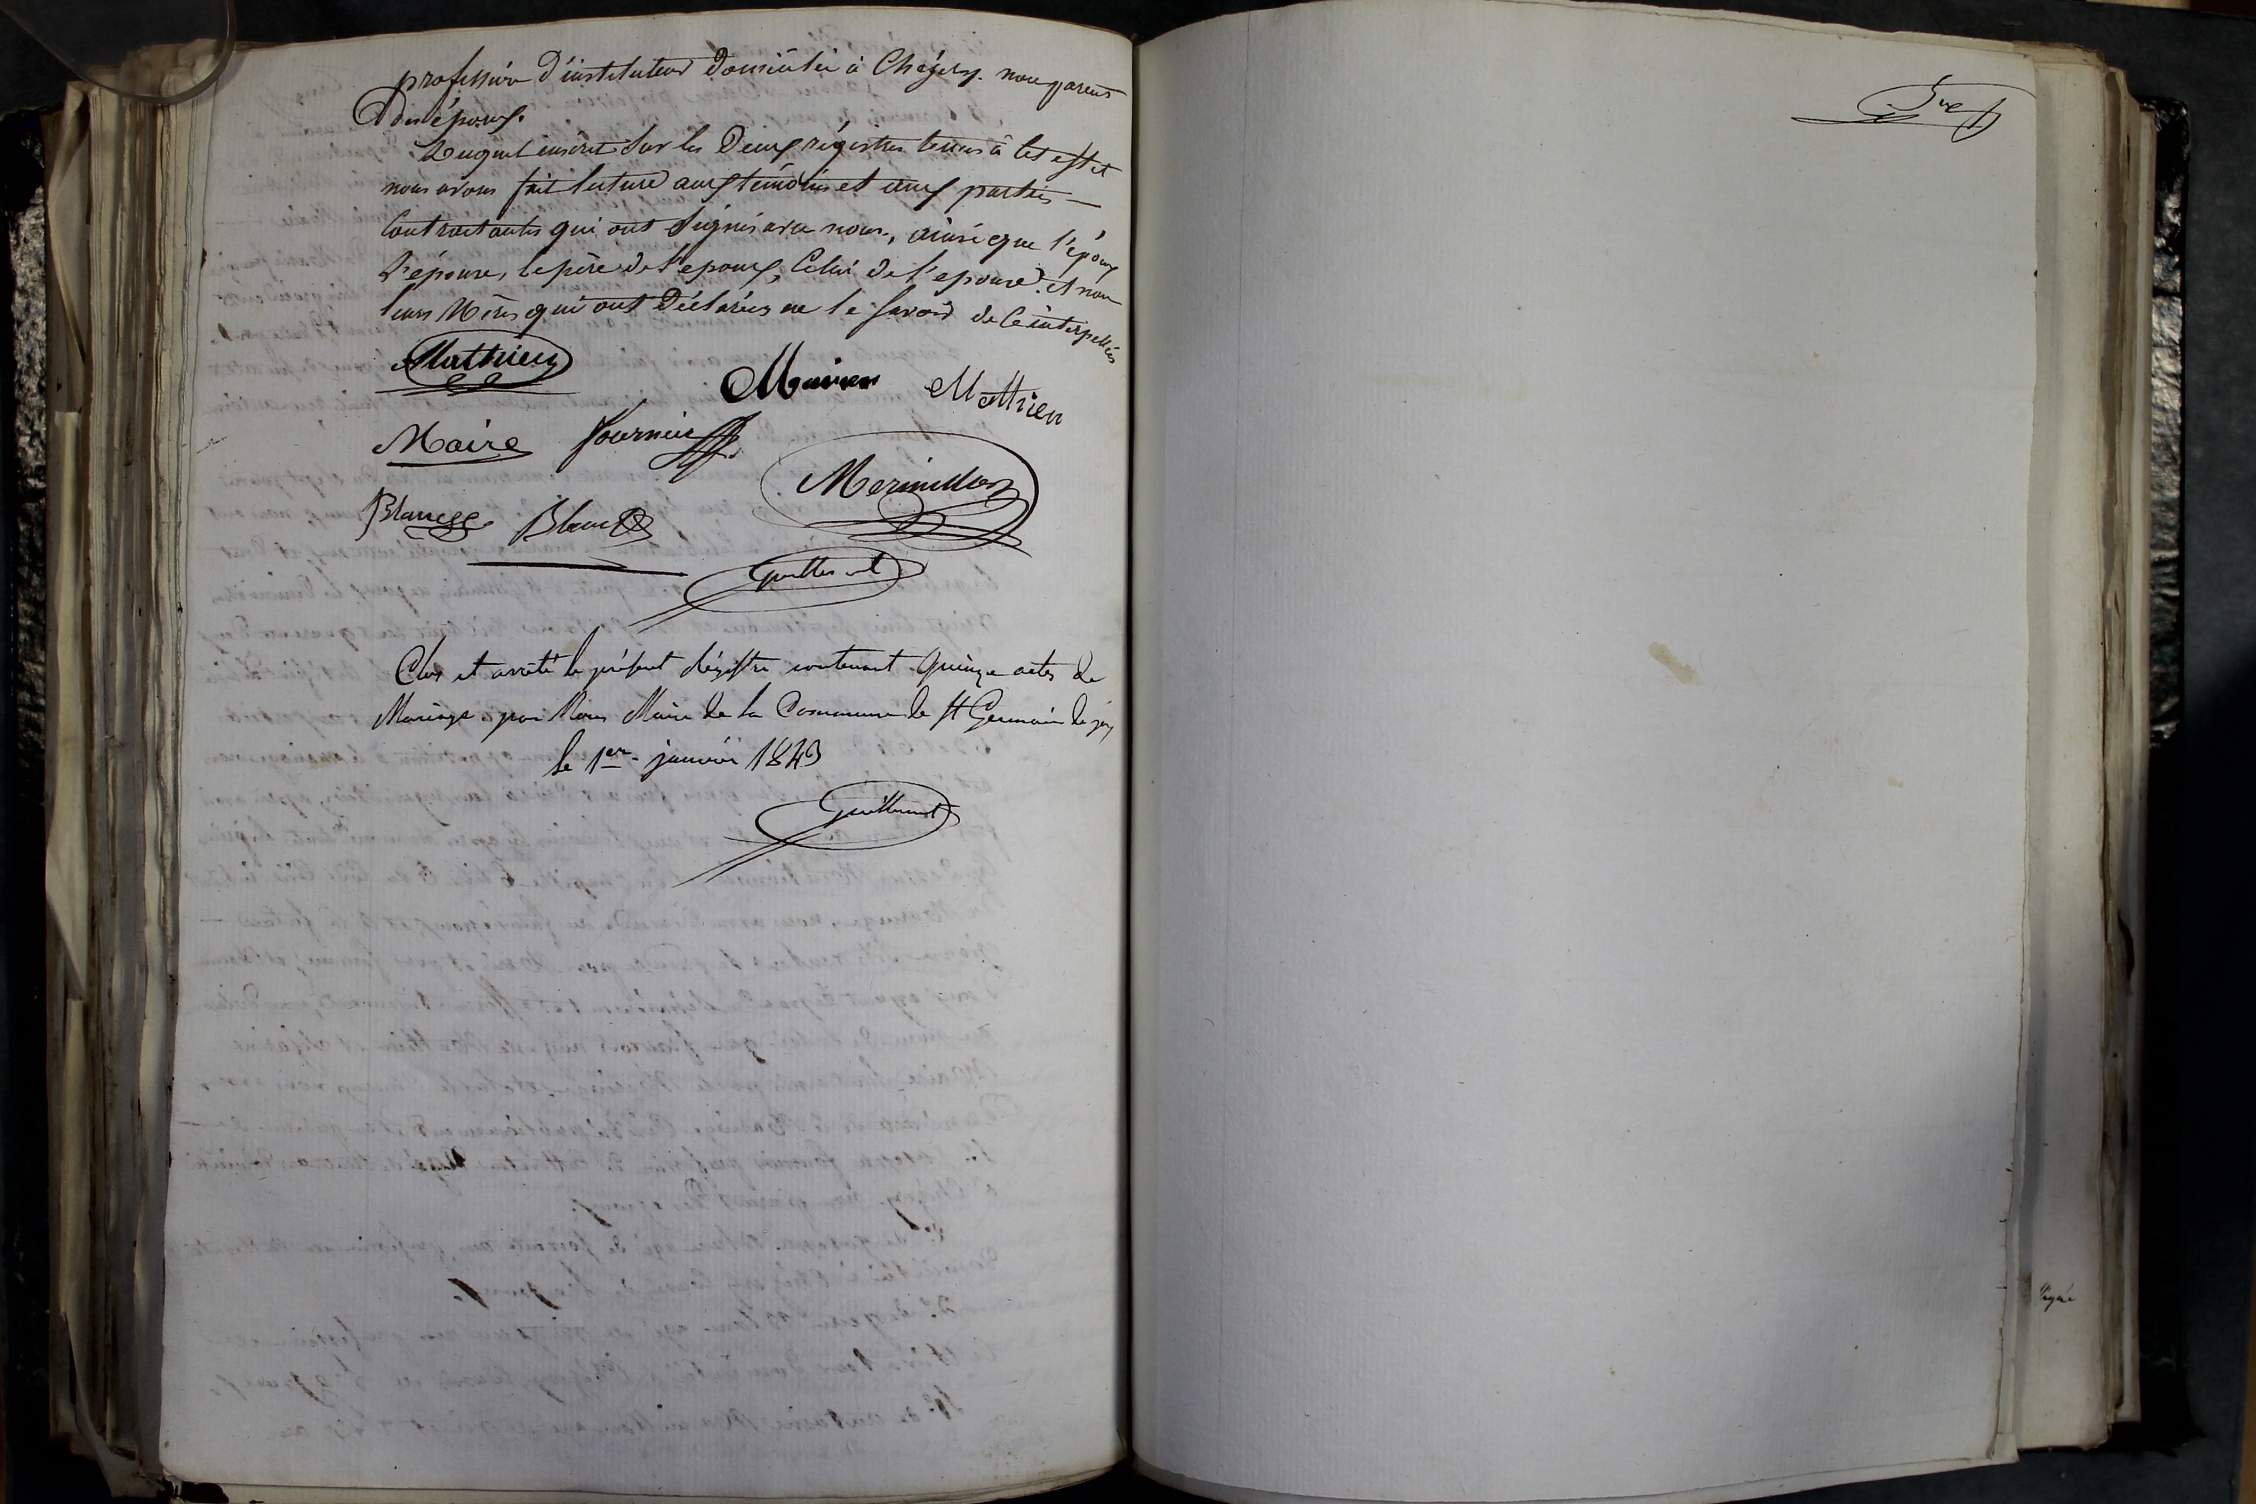 profession d'instituteur domicilié à Chézery. non parent
des époux.
Duquel inscrit sur les deux régistres tenus à cet effet
nous avons fait lecture aux témoins et aux parties —
Contractantes qui ont signés avec nous, ainsi que l'époux
l'épouse, le père de l'epoux, Celui de l'epouse. et non
leurs Mères qui ont déclarées ne le savoir de ce interpellées
Mathieu
Mathieu
Maire Fournier
Mermillon
Blanc
Guillermet
Clos et arrêté le présent régistre contenant quinze actes de
Mariage. par Nous Maire de la Commune de St Germain de joux
le 1er. janvier 1843
Guillermet